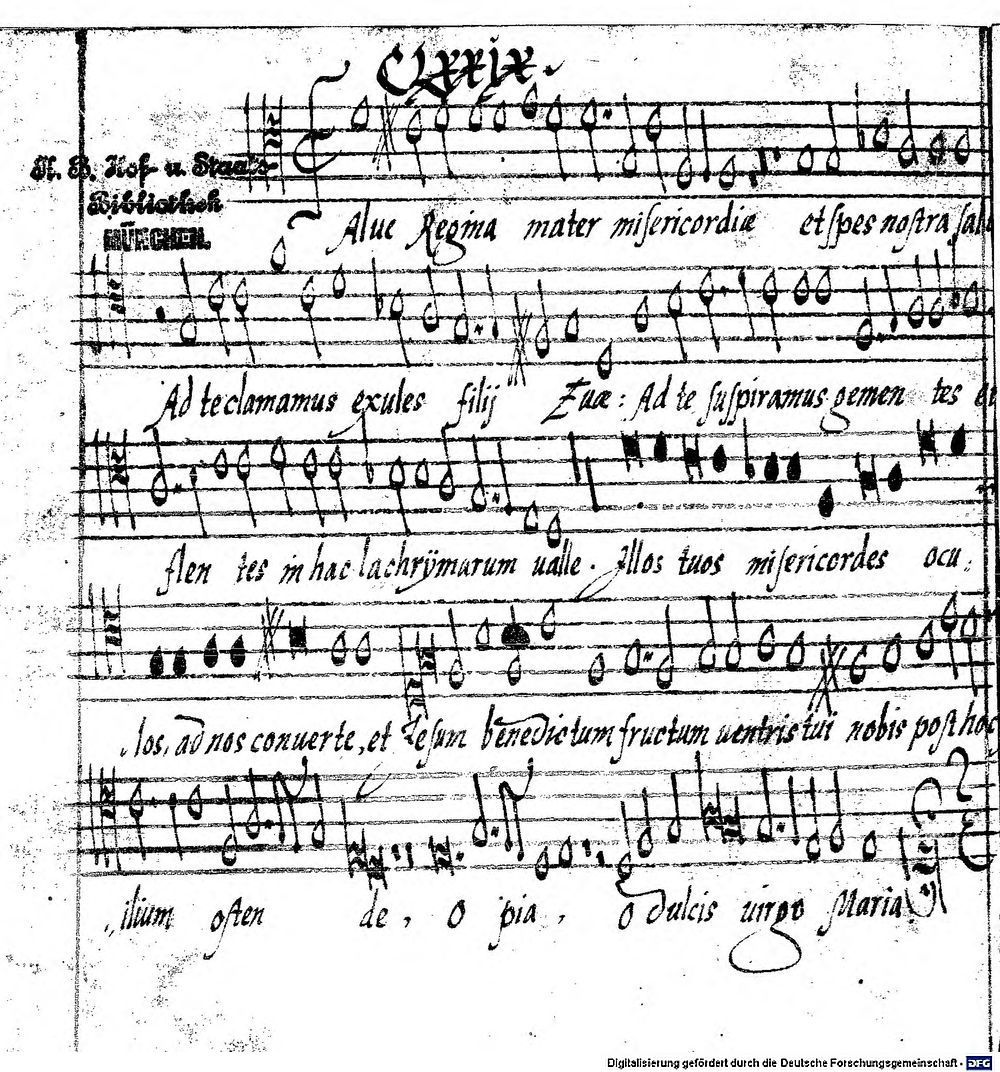 Clxxix.
K. B. Hof- u. Staats-
Bibliothek
MÜNCHEN.
Alue Regina mater misericordiæ et spes nostra salu
Ad te clamamus exules filij Euæ: Ad te suspiramus gemen tes et
flen tes in hac lachrÿmarum ualle. Illos tuos misericordes ocu,
,los, ad nos conuerte, et Iesum benedictum fructum uentris tui nobis post hoc
,ilium osten de, O pia, O dulcis uirgo Maria.
Digitalisierung gefördert durch die Deutsche Forschungsgemeinschaft - DFG